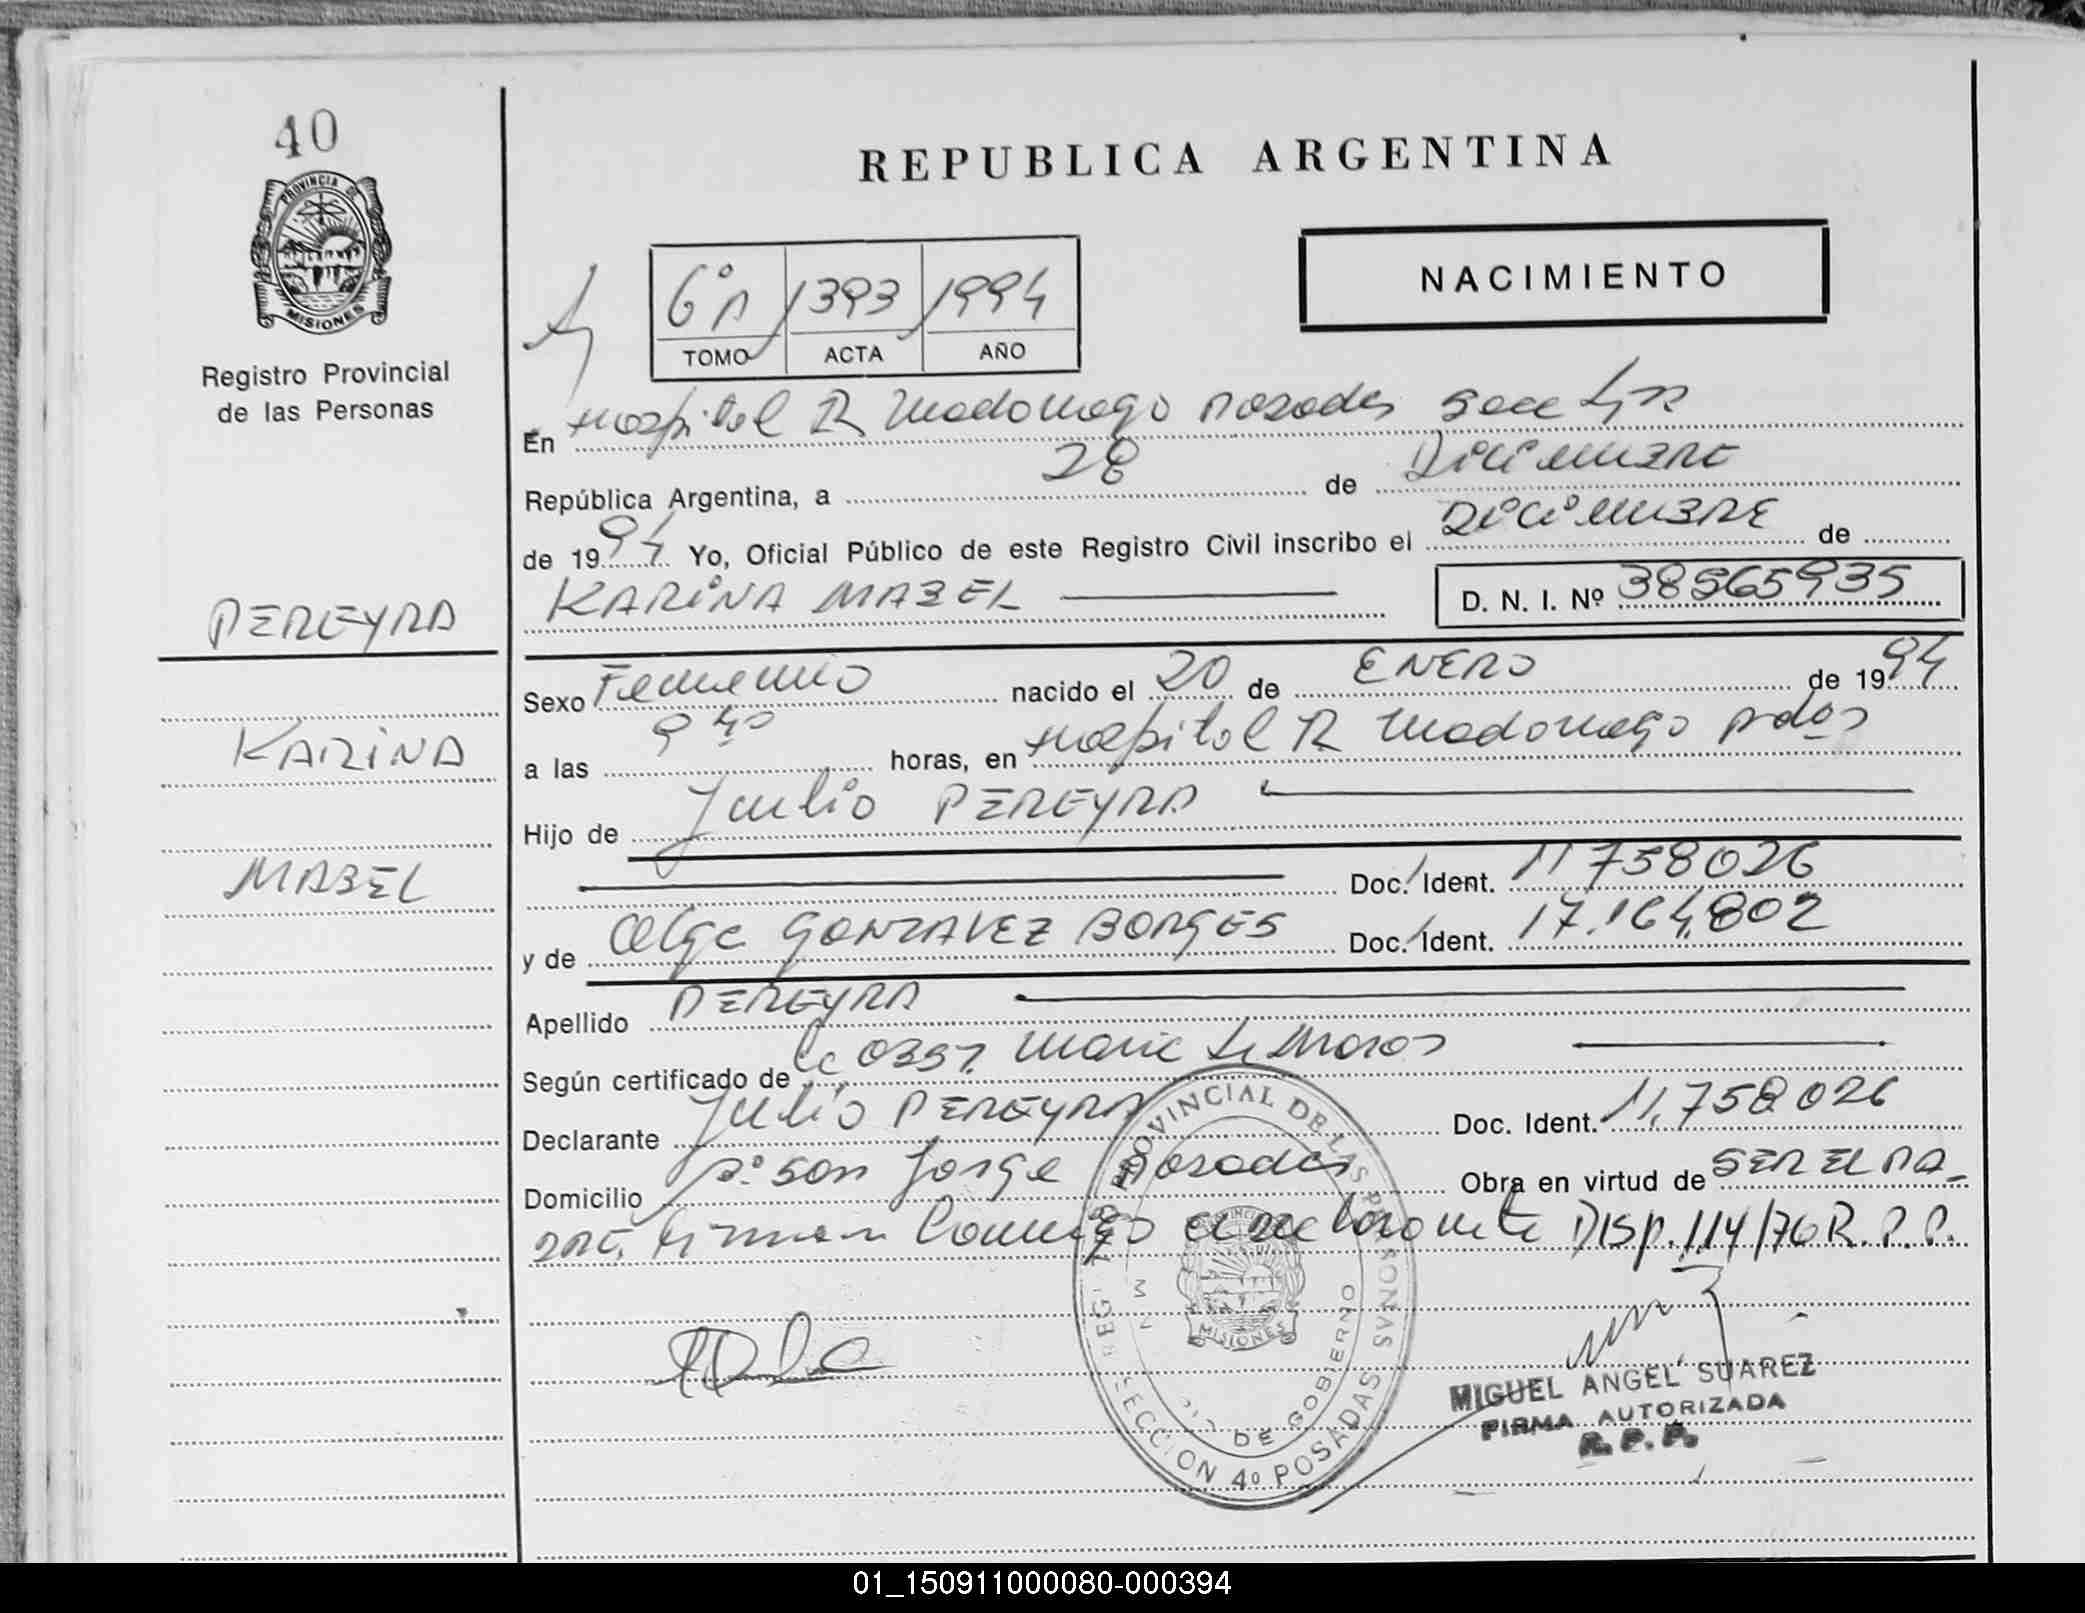 40
PROVINCIA DE
MISIONES
Registro Provincial
de las Personas
PEREYRA
KARINA
MABEL
REPUBLICA ARGENTINA
NACIMIENTO
6º A 1393 1994
TOMO ACTA AÑO
En Hospital R Madariaga Posadas Secc
República Argentina, a 28 de Diciembre
de 1994 Yo, Oficial Público de este Registro Civil inscribo el Diciembre de
KARINA MABEL D. N. I. Nº 38565935
Sexo Femenino nacido el 20 de ENERO de 1994
a las 9 horas, en Hospital R Madariaga Pdas
Hijo de Julio PEREYRA
Doc. Ident. 11758026
y de Olga GONZALEZ BORGES Doc. Ident. 17.164.802
Apellido PEREYRA
Según certificado de la Obst. Maria
Declarante Julio PEREYRA Doc. Ident. 11.758026
Domicilio Bº San Jorge Posadas Obra en virtud de SER EL PA_
DRE, Firman Conmigo el declarante DISP. 114/76 R.P.P.
REG PROVINCIAL DE LAS PERSONAS
DE GOBIERNO
MISIONES
SECCION 4º POSADAS
MIGUEL ANGEL SUAREZ
FIRMA AUTORIZADA
R. P. P.
01_150911000080-000394